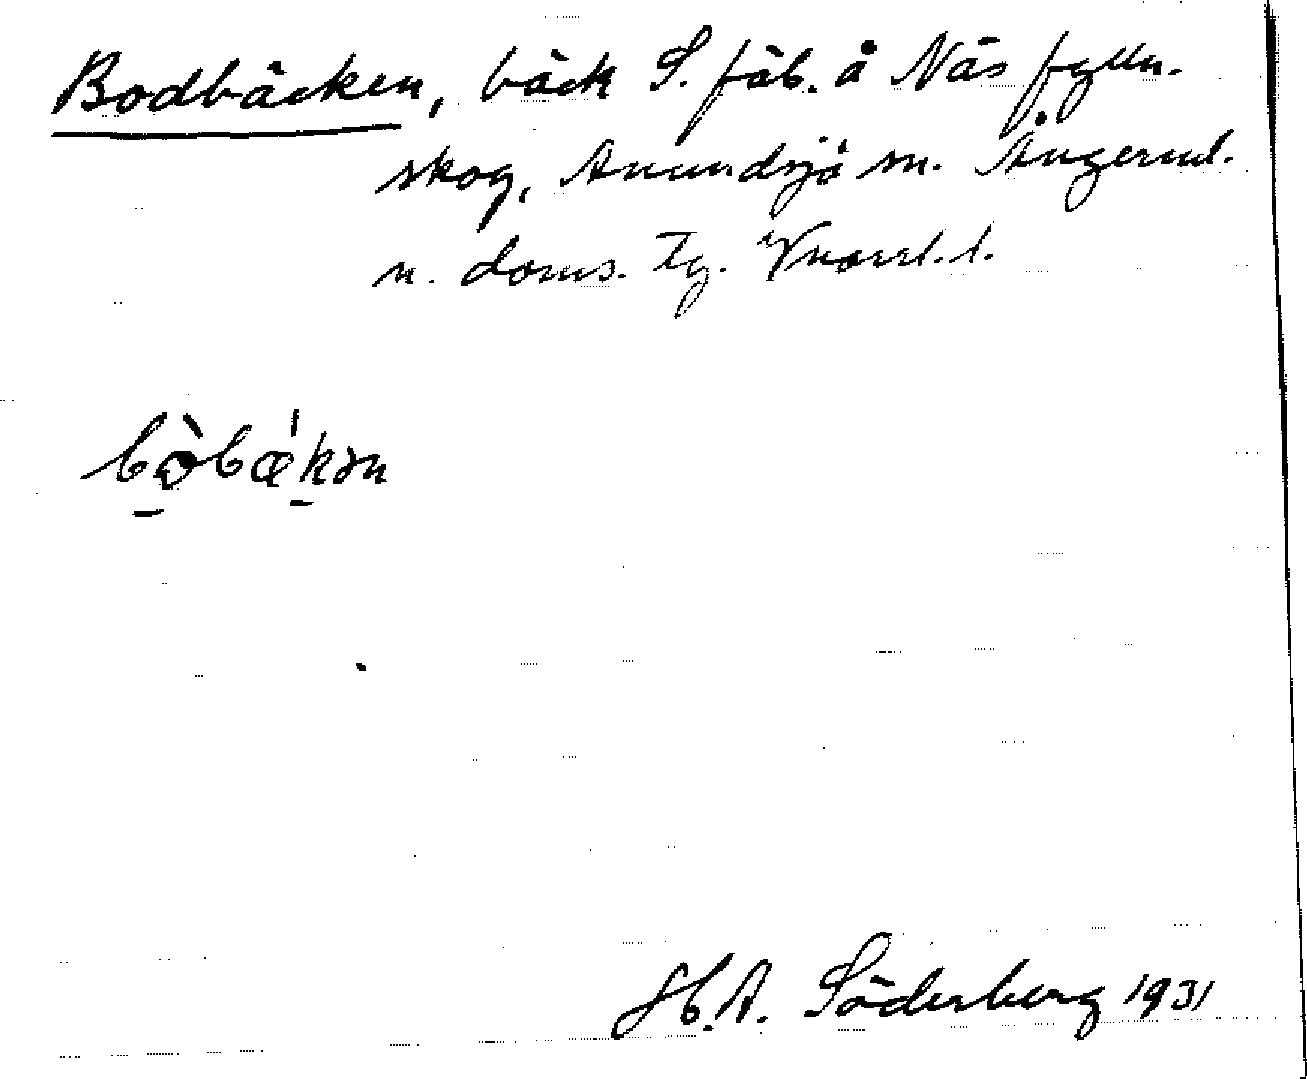 Bodbäcken, bäck S. fäb. å Näs fylln.
skog, Anundsjö sn. Ångerml.
n. doms. Tg. Vnorrl. l.
bòbǽkən
H. A. Söderberg 1931